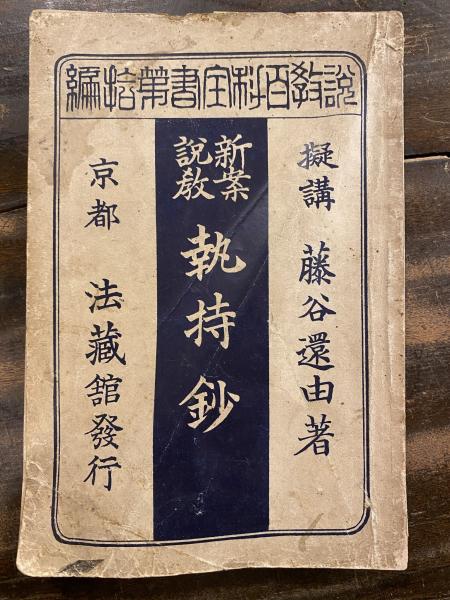 説教百科全書第拾編
擬講 藤谷還由著
新案
説教
執持鈔
京都 法藏館發行